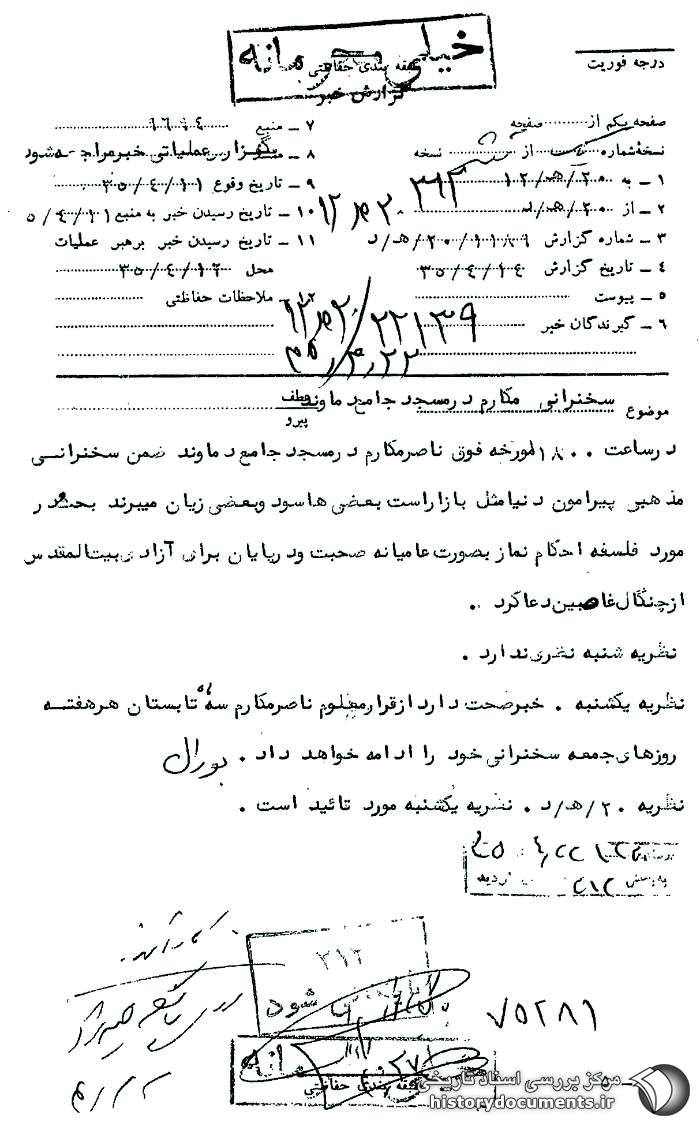 خیلی محرمانه
طبقه بندی حفاظتی
گزارش خبر
درجه فوریت
صفحه یکم از صفحه
نسخه شماره یک از نسخه
۱ ــ به ۲۰/هـ/۱۲
۲ ــ از ۲۰/هـ/د
۳ ــ شماره گزارش ۲۰/۱۱۸۹/هـ/د
۴ ــ تاریخ گزارش ۳۵/۴/۱۴
۵ ــ پیوست
۶ ــ گیرندگان خبر
۷ ــ منبع ۱۶۹۴
۸ ــ بگهزار عملیاتی خبرمراجعه شود
۹ ــ تاریخ وقوع ۳۵/۴/۱۱
۱۰ ــ تاریخ رسیدن خبر به منبع ۳۵/۴/۱۱
۱۱ ــ تاریخ رسیدن خبر برهبر عملیات
محل ۳۵/۴/۱۲
۱۲ ــ ملاحظات حفاظتی
۳۶۲
۲۲۱۳۹
موضوع سخنرانی مکارم درمسجد جامع دماوند
عطف
پیرو
درساعت ۱۸۰۰ مورخه فوق ناصرمکارم درمسجد جامع دماوند ضمن سخنرانی
مذهبی پیرامون دنیا مثل بازاراست بعضی ها سود وبعضی زیان میبرند بحث و در
مورد فلسفه احکام نماز بصورت عامیانه صحبت ودرپایان برای آزادی بیت المقدس
ازچنگال غاصبین دعا کرد .
نظریه شنبه نظری ندارد .
نظریه یکشنبه . خبرصحت دارد ازقرارمعلوم ناصرمکارم سه ماه تابستان هرهفته
روزهای جمعه سخنرانی خود را ادامه خواهد داد .
نظریه ۲۰/هـ/د . نظریه یکشنبه مورد تائید است .
۳۱۲
۳۱۲
شود
۷۵۲۸۱
طبقه بندی حفاظتی
مرکز بررسی اسناد تاریخی
historydocuments.ir